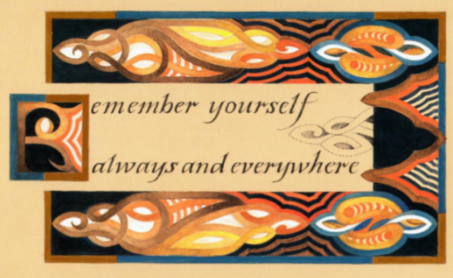 Remember yourself
always and everywhere